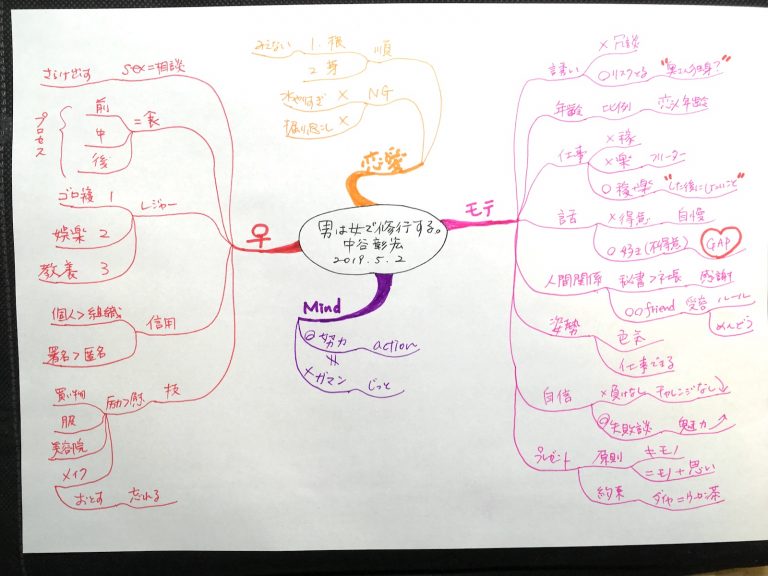 男は女で修行する。
中谷彰宏
2019.5.2
モテ
誘い
×冗談
○リスクとる
"実るんは自身?"
年齢 比例 恋メ年齢
仕事
×稼
×楽 フリーター
○稼+楽 "した後にしたいこと"
話
×得意 自慢
○好き(不得意) GAP
人間関係 秘書>社長 感謝
○○friend 受容 ルール
めんどう
姿勢
色気
仕事できる
自信
×負けなし チャレンジなし↘
◎失敗談 魅力↗
プレゼント
原則 ≠モノ
=モノ+思い
約束 ダイヤ=ウーロン茶
恋愛
順
1.根 みえない
2芽
NG
× 水やりすぎ
× 掘り返し
♀
sex=相談 さらけ出す
=食
プロセス
前
中
後
レジャー
ゴロ寝 1
娯楽 2
教養 3
信用
個人>組織
署名>匿名
技
励>慰
買い物
服
美容院
メイク
おとす 忘れる
Mind
◎努力 action
≠
×ガマン じっと